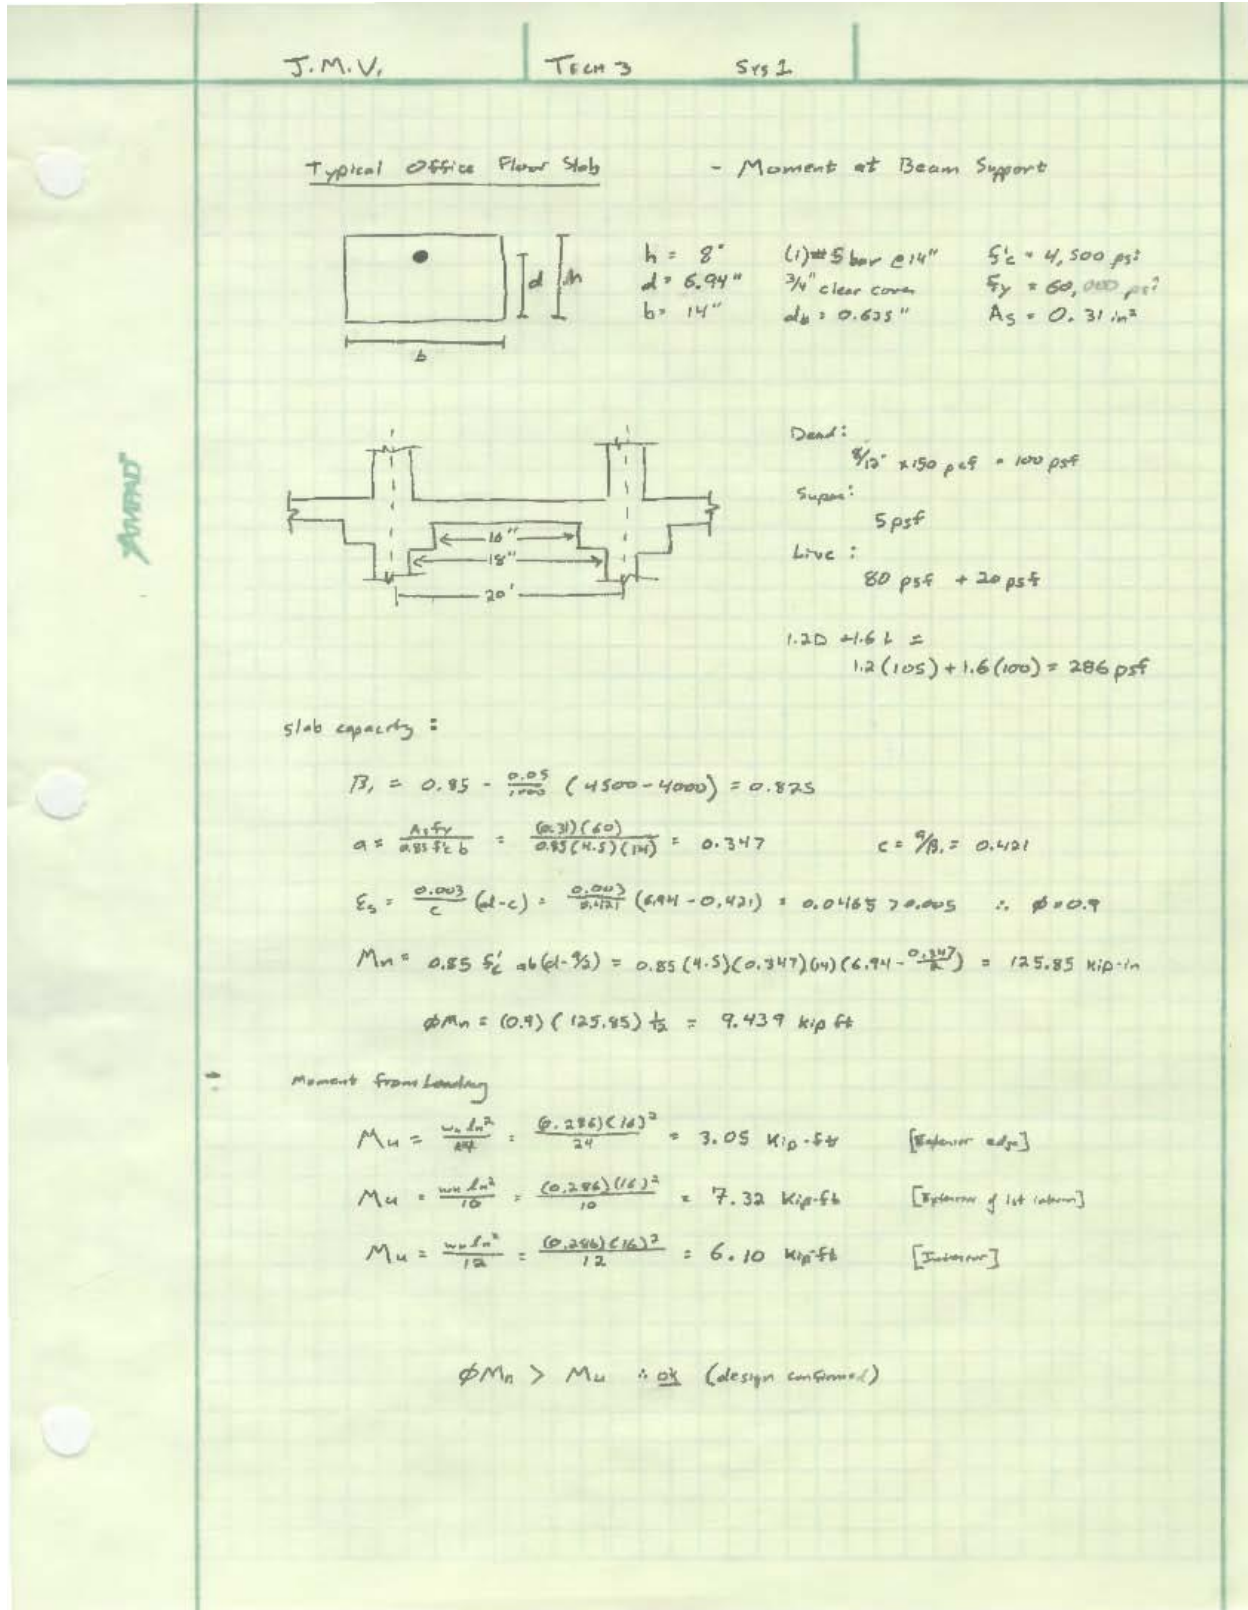 J.M.V. TECH 3 SYS 1
Typical Office Floor Slab - Moment at Beam Support
h = 8" (1)#5 bar @14" f'c = 4,500 psi
d = 6.94" 3/4" clear cover fy = 60,000 psi
b = 14" db = 0.625" As = 0.31 in²
d h
b
AMPAD
Dead:
8/12" x150 pcf = 100 psf
Super:
5 psf
Live:
80 psf + 20 psf
16"
18"
20'
1.2D +1.6 L =
1.2(105) + 1.6(100) = 286 psf
slab capacity:
β₁ = 0.85 - 0.05/1000 (4500-4000) = 0.825
a = Asfy/0.85 f'c b = (0.31)(60)/0.85(4.5)(14) = 0.347 c = a/β₁ = 0.421
εs = 0.003/c (d-c) = 0.003/0.421 (6.94-0.421) = 0.0465 > 0.005 ∴ ø=0.9
Mn = 0.85 f'c ab(d-a/2) = 0.85(4.5)(0.347)(14)(6.94-0.347/2) = 125.85 kip-in
øMn = (0.9)(125.85) 1/12 = 9.439 kip ft
Moment from Loading
Mu = wu ln²/24 = (0.286)(16)²/24 = 3.05 Kip-ft [Exterior edge]
Mu = wu ln²/10 = (0.286)(16)²/10 = 7.32 Kip-ft [Exterior of 1st]
Mu = wu ln²/12 = (0.286)(16)²/12 = 6.10 Kip-ft [Interior]
øMn > Mu ∴ ok (design confirmed)